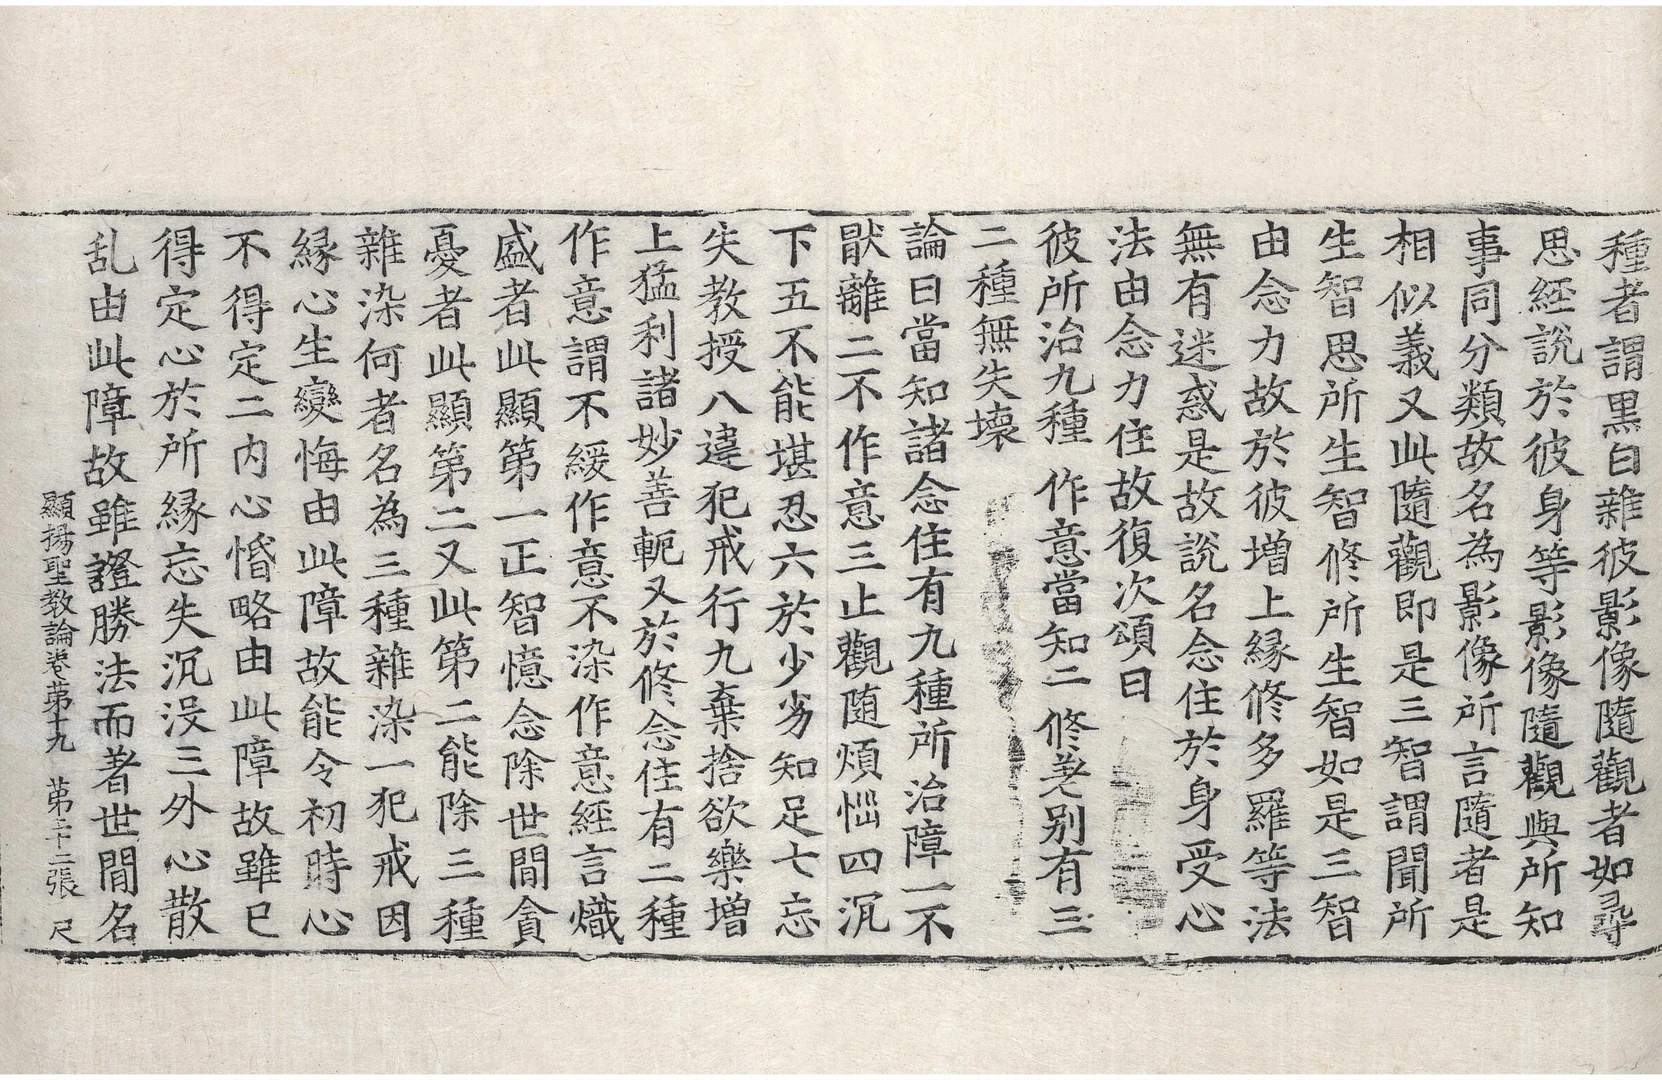 種者謂黒白雜彼影像隨觀者如尋
思經說於彼身等影像隨觀與所知
事同分類故名為影像所言隨者是
相似義又此隨觀即是三智謂聞所
生智思所生智修所生智如是三智
由念力故於彼增上縁修多羅等法
無有迷惑是故說名念住於身受心
法由念力住故復次頌曰
彼所治九種 作意當知二 修差别有三
二種無失壞
論曰當知諸念住有九種所治障一不
猒離二不作意三止觀随煩惱四沉
下五不能堪忍六於少劣知足七忘
失教授八違犯戒行九棄捨欲樂増
上猛利諸妙善軛又於修念住有二種
作意謂不緩作意不染作意經言熾
盛者此顯第一正智憶念除世間貪
憂者此顯第二又此第二能除三種
雜染何者名為三種雜染一犯戒因
縁心生變悔由此障故能令初時心
不得定二内心惛略由此障故雖已
得定心於所縁忘失沉没三外心散
乱由此障故雖證勝法而著世間名
顯揚聖教論卷苐十九 苐二十二張 尺